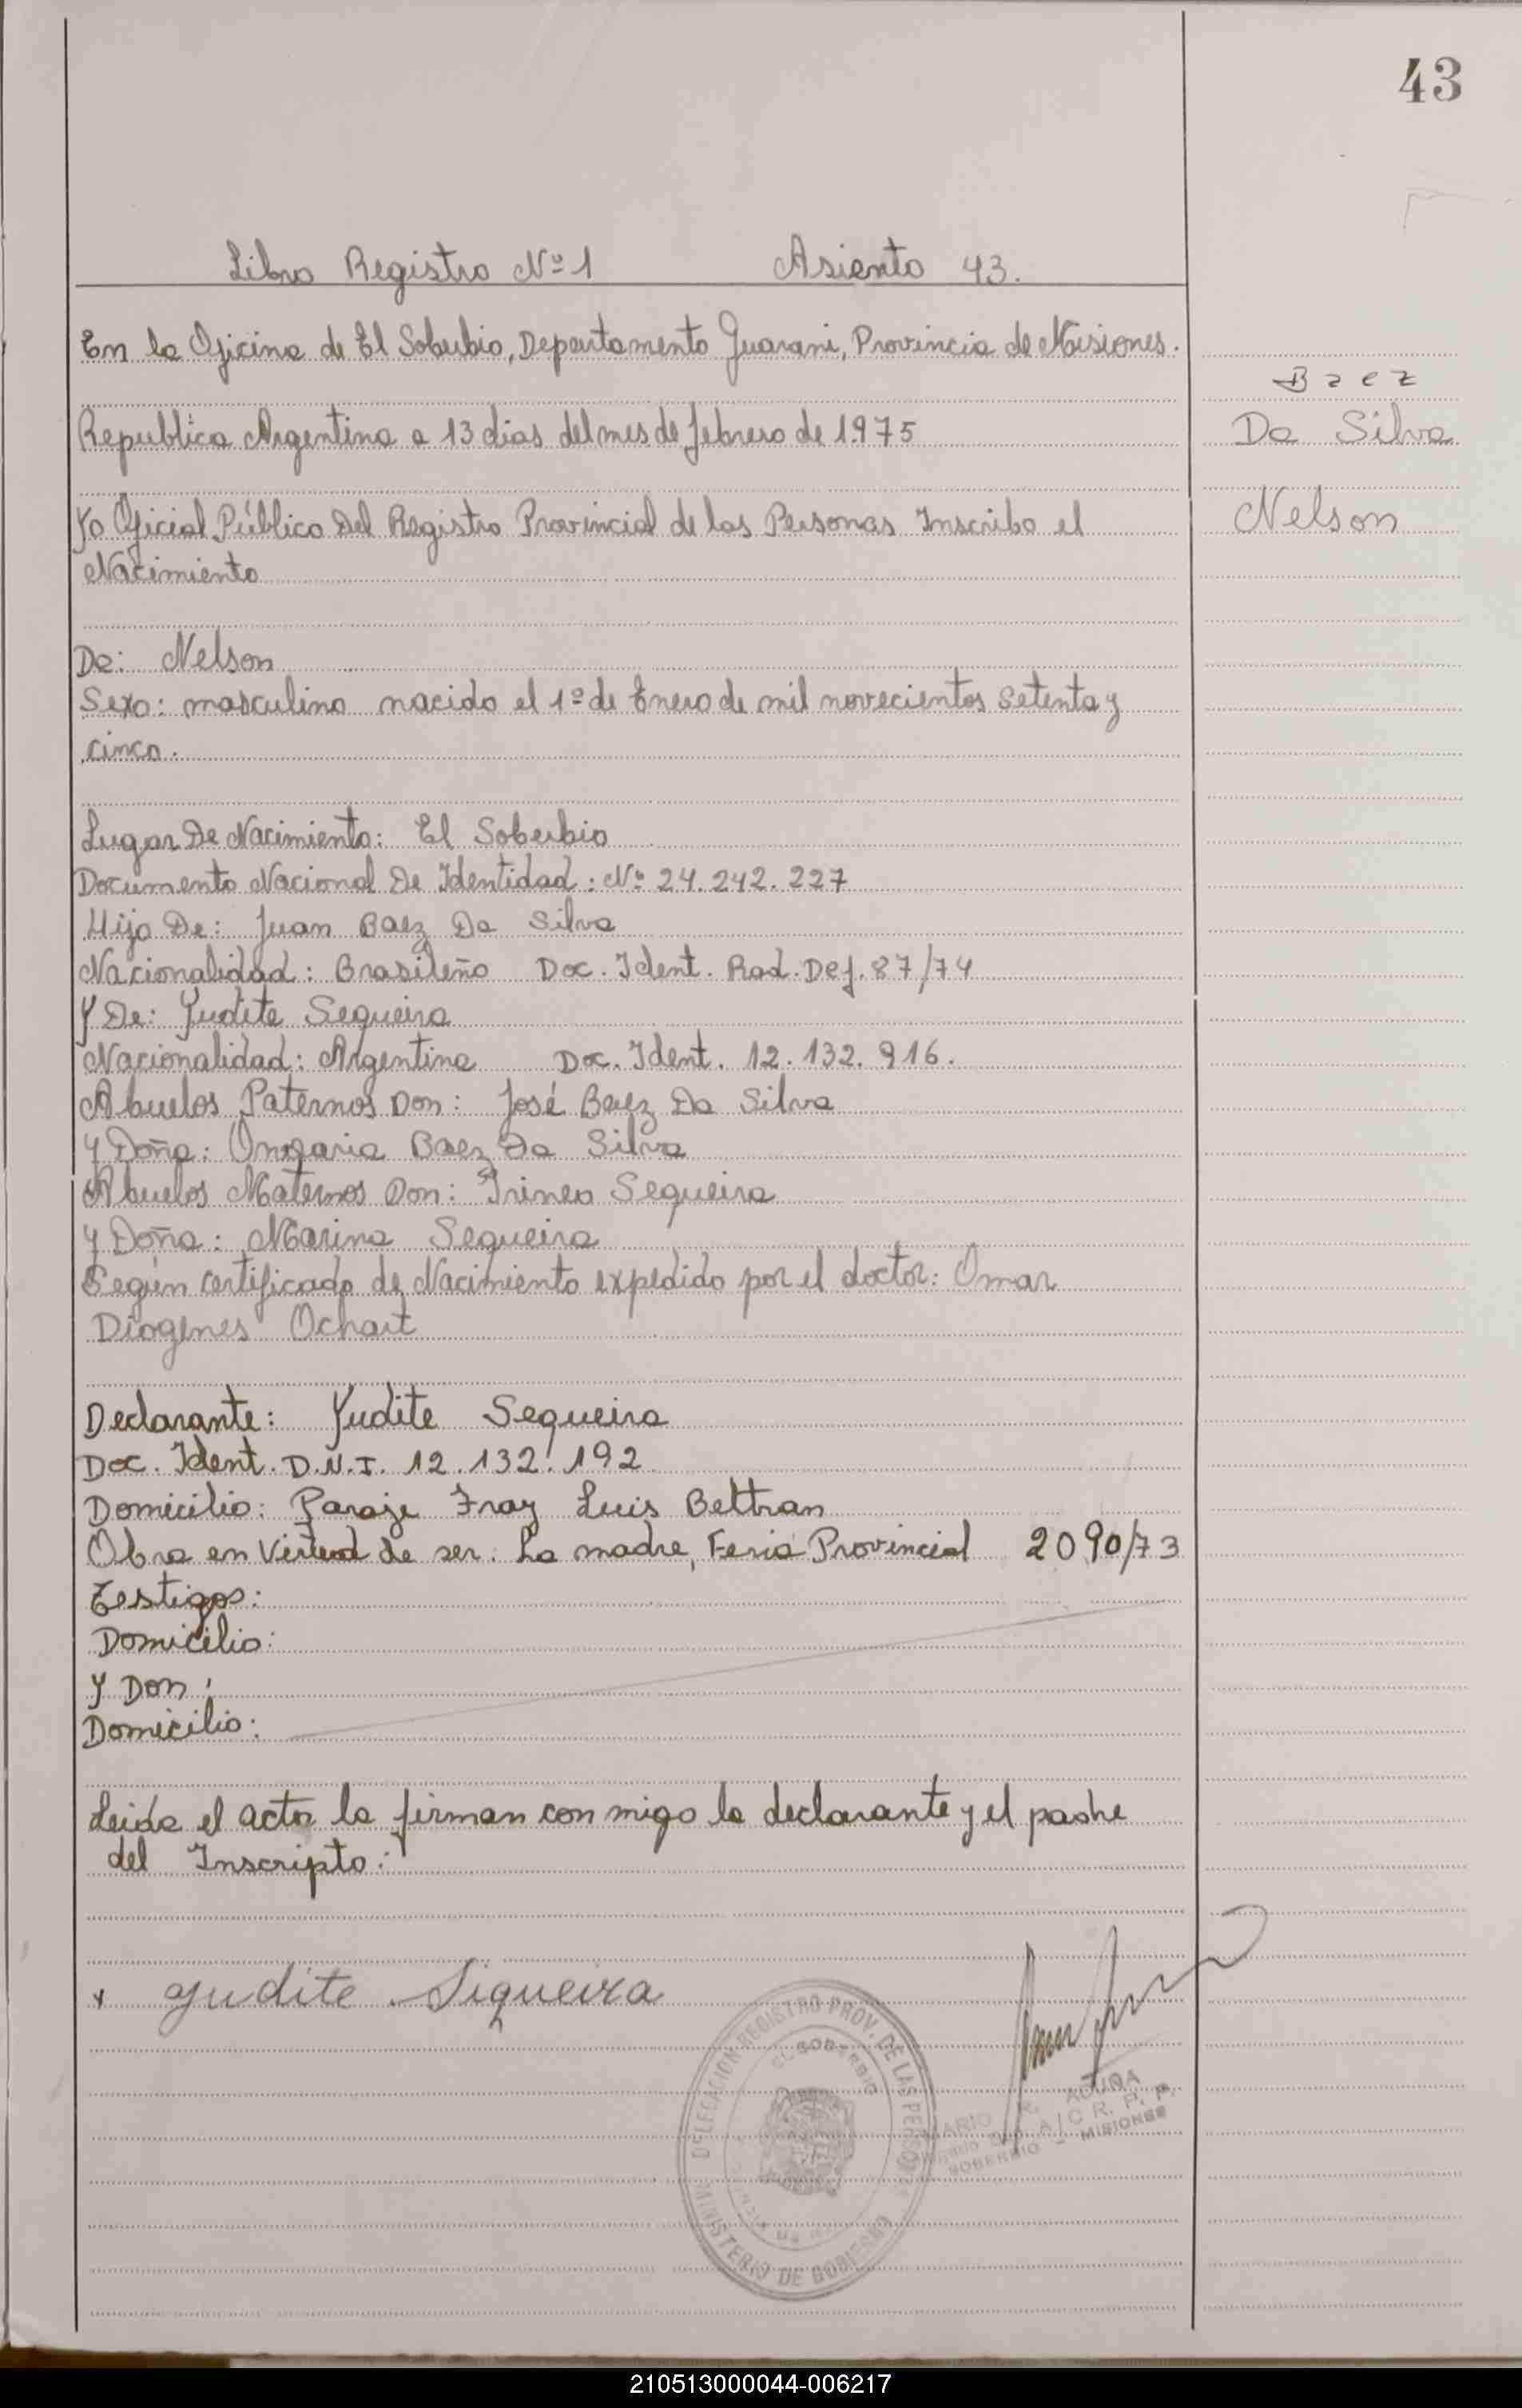 43
Libro Registro Nº 1 Asiento 43.
En la Oficina de El Soberbio, Departamento Guarani, Provincia de Misiones.
Baez
Republica Argentina a 13 dias del mes de febrero de 1975
Da Silva
Yo Oficial Público Del Registro Provincial de las Personas Inscribo el
Nelson
Nacimiento
De: Nelson
Sexo: masculino nacido el 1º de Enero de mil novecientos Setenta y
cinco.
Lugar De Nacimiento: El Soberbio
Documento Nacional De Identidad: Nº 24.242.227
Hijo De: Juan Baez Da Silva
Nacionalidad: Brasileño Doc. Ident. Rad. Def. 87/74
Y De: Yudite Sequeira
Nacionalidad: Argentina Doc. Ident. 12.132.916.
Abuelos Paternos Don: José Baez Da Silva
y Doña: Baez Da Silva
Abuelos Maternos Don: Irineo Sequeira
y Doña: Marina Sequeira
Según certificado de Nacimiento expedido por el doctor: Omar
Diogenes Ochart
Declarante: Yudite Sequeira
Doc. Ident. D.N.I. 12.132.192
Domicilio: Paraje Fray Luis Beltran
Obra en Virtud de ser. La madre, Feria Provincial 2090/73
Testigos:
Domicilio:
y Don:
Domicilio:
Leida el acta la firman con migo la declarante y el padre
del Inscripto:
x yudite Siqueira
DELEGACION REGISTRO PROV. DE LAS PERSONAS
EL SOBERBIO
MINISTERIO DE GOBIERNO
MARIO R. ACUÑA
A/C R. P. P.
SOBERBIO - MISIONES
210513000044-006217